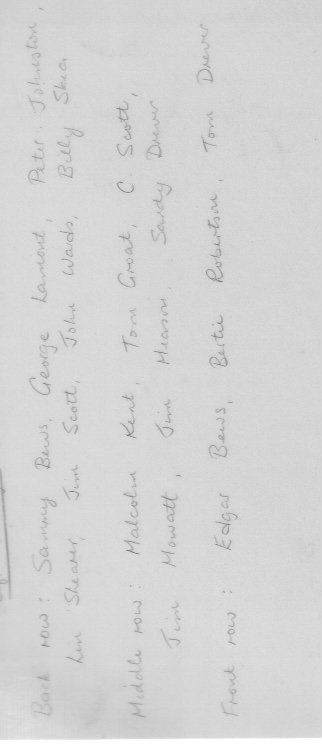 Back row: Sammy Bews, George Lamont, Peter Johnston,
Len Shearer, Jim Scott, John Wards, Billy Shea
Middle row: Malcolm Kent, Tom Groat, C. Scott,
Jim Mowatt, Jim Hearson, Sandy Drever
Front row: Edgar Bews, Bertie Robertson, Tom Drever